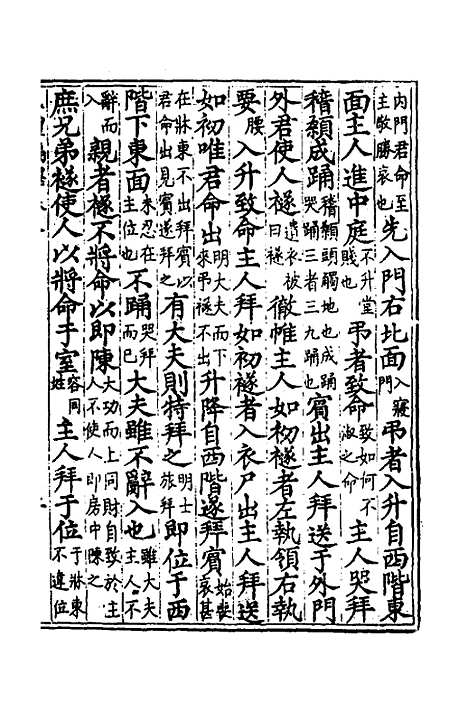 內門君命至主敬勝哀也先入門右北面入寢門弔者入升自西階東
面主人進中庭不升堂賤也弔者致命致如何不淑之命主人哭拜
稽顙成踊稽顙頭觸地也成踊哭踊三者三九踊也賓出主人拜送于外門
外君使人襚遺衣被曰襚徹帷主人如初襚者左執領右執
要腰入升致命主人拜如初襚者入衣尸出主人拜送
如初唯君命出明大夫而下來弔襚不出升降自西階遂拜賓始喪哀甚
在牀東不出拜賓以君命出見賓遂拜之有大夫則特拜之明士旅拜即位于西
階下東面未忍在主位也不踊哭拜而已大夫雖不辭入也雖大夫主人不
辭而入親者襚不將命以即陳大功而上同財自致於主人不使人即房中陳之
庶兄弟襚使人以將命于室容同姓主人拜于位于牀東不違位